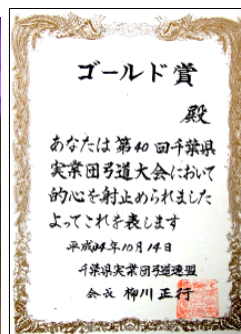 ゴールド賞
殿
あなたは第40回千葉県
実業団弓道大会において
的心を射止められました
よってこれを表します
平成24年10月14日
千葉県実業団弓道連盟
会長 柳川正行